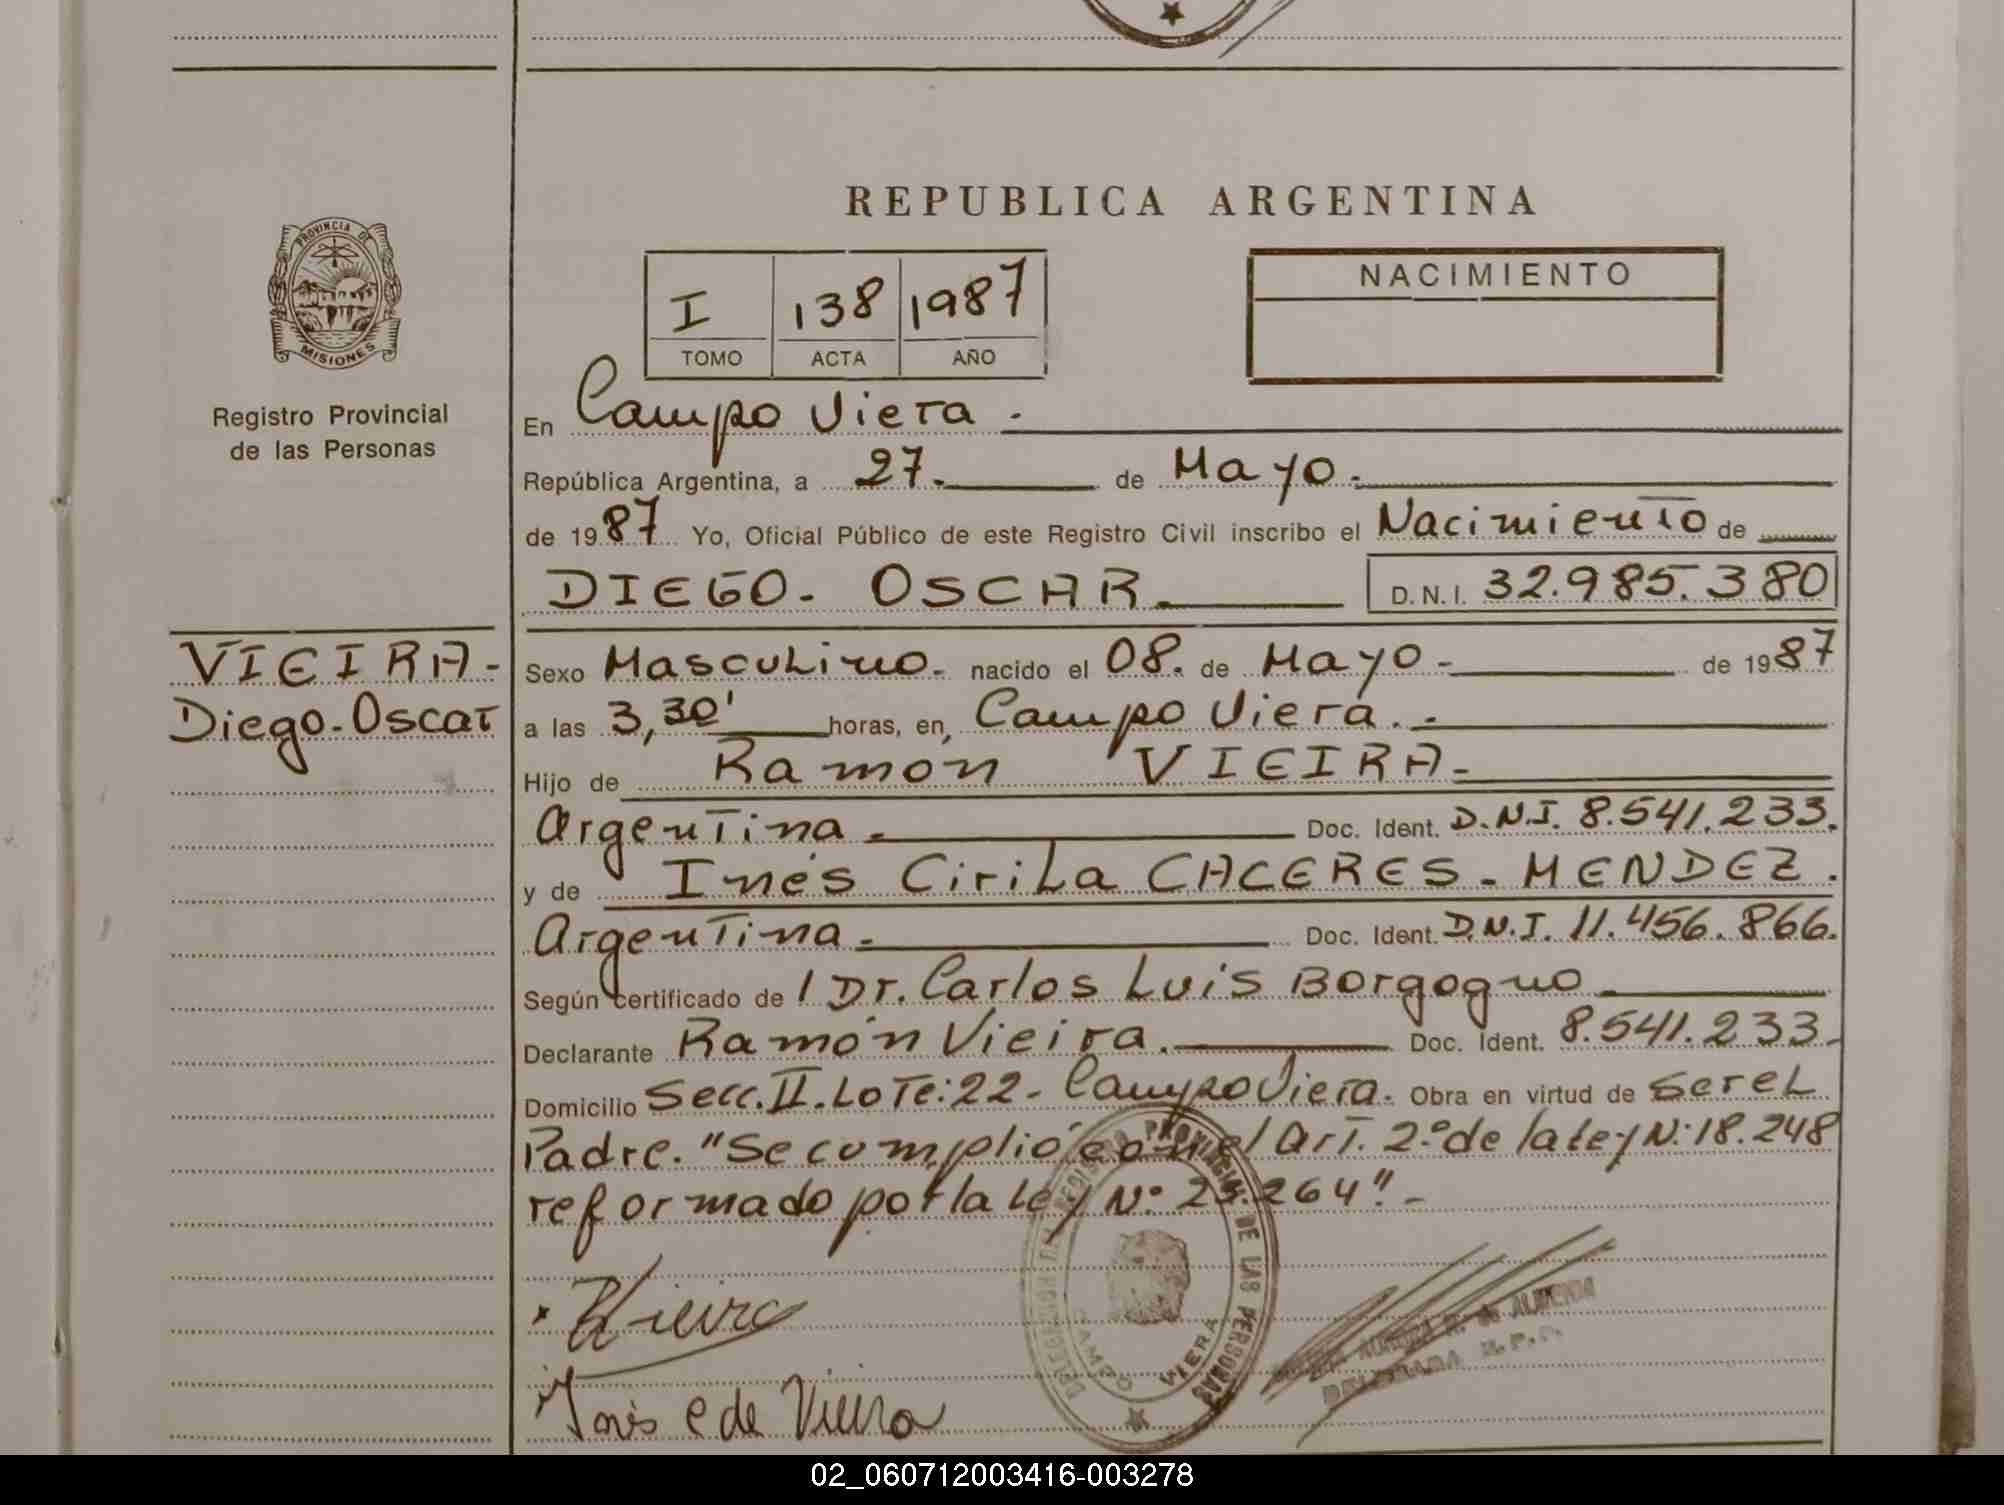 REPUBLICA ARGENTINA
PROVINCIA DE
MISIONES
Registro Provincial
de las Personas
I 138 1987
TOMO ACTA AÑO
NACIMIENTO
En Campo Viera.
República Argentina, a 27. de Mayo.
de 1987 Yo, Oficial Público de este Registro Civil inscribo el Nacimiento de
DIEGO. OSCAR. D.N.I. 32.985.380
VIEIRA-
Diego-Oscar
Sexo Masculino. nacido el 08. de Mayo. de 1987
a las 3,30' horas, en, Campo Viera.
Hijo de Ramón VIEIRA-
Argentina. Doc. Ident. D.N.I. 8.541.233.
y de Inés Cirila CACERES-MENDEZ.
Argentina. Doc. Ident. D.N.I. 11.456.866.
Según certificado de l Dr. Carlos Luis Borgogno
Declarante Ramón Vieira. Doc. Ident. 8.541.233.
Domicilio Secc.II.Lote:22- Campo Viera. Obra en virtud de ser el
Padre. "Se cumplió con el Art. 2º de la ley N: 18.248
reformado por la ley Nº 23.264".-
REGISTRO PROVINCIAL DE LAS PERSONAS
CAMPO VIERA
Vieira
Inés C de Vieira
DE ALMEIDA
DELEGADA R.P.P.
02_060712003416-003278